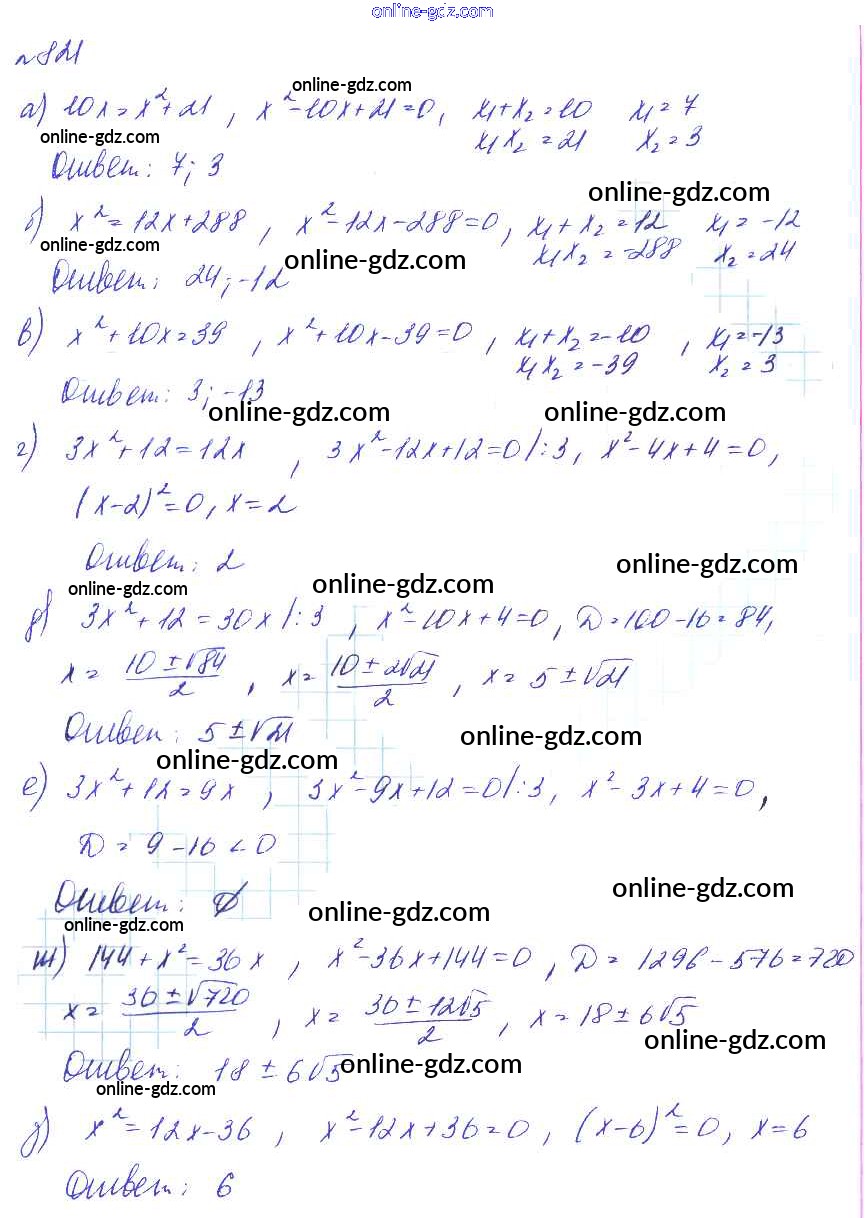 online-gdz.com
№821
online-gdz.com
а) 10x = x² + 21 , x² - 10x + 21 = 0, x₁ + x₂ = 10 x₁ = 7
x₁x₂ = 21 x₂ = 3
online-gdz.com
Ответ: 7; 3
online-gdz.com
б) x² = 12x + 288 , x² - 12x - 288 = 0 , x₁ + x₂ = 12 x₁ = -12
x₁x₂ = -288 x₂ = 24
online-gdz.com
online-gdz.com
Ответ: 24; -12
в) x² + 10x = 39 , x² + 10x - 39 = 0 , x₁ + x₂ = -10 , x₁ = -13
x₁x₂ = -39 x₂ = 3
Ответ: 3; -13
online-gdz.com online-gdz.com
г) 3x² + 12 = 12x , 3x² - 12x + 12 = 0 /:3, x² - 4x + 4 = 0,
(x-2)² = 0, x = 2
Ответ: 2
online-gdz.com
online-gdz.com online-gdz.com
д) 3x² + 12 = 30x /:3 , x² - 10x + 4 = 0, D = 100 - 16 = 84,
x = (10 ± √84)/2 , x = (10 ± 2√21)/2 , x = 5 ± √21
Ответ: 5 ± √21
online-gdz.com online-gdz.com
е) 3x² + 12 = 9x , 3x² - 9x + 12 = 0 /:3, x² - 3x + 4 = 0,
D = 9 - 16 < 0
Ответ: ∅
online-gdz.com
online-gdz.com
online-gdz.com
ж) 144 + x² = 36x , x² - 36x + 144 = 0 , D = 1296 - 576 = 720
x = (36 ± √720)/2 , x = (36 ± 12√5)/2 , x = 18 ± 6√5
online-gdz.com
Ответ: 18 ± 6√5
online-gdz.com
online-gdz.com
з) x² = 12x - 36 , x² - 12x + 36 = 0 , (x-6)² = 0, x = 6
Ответ: 6